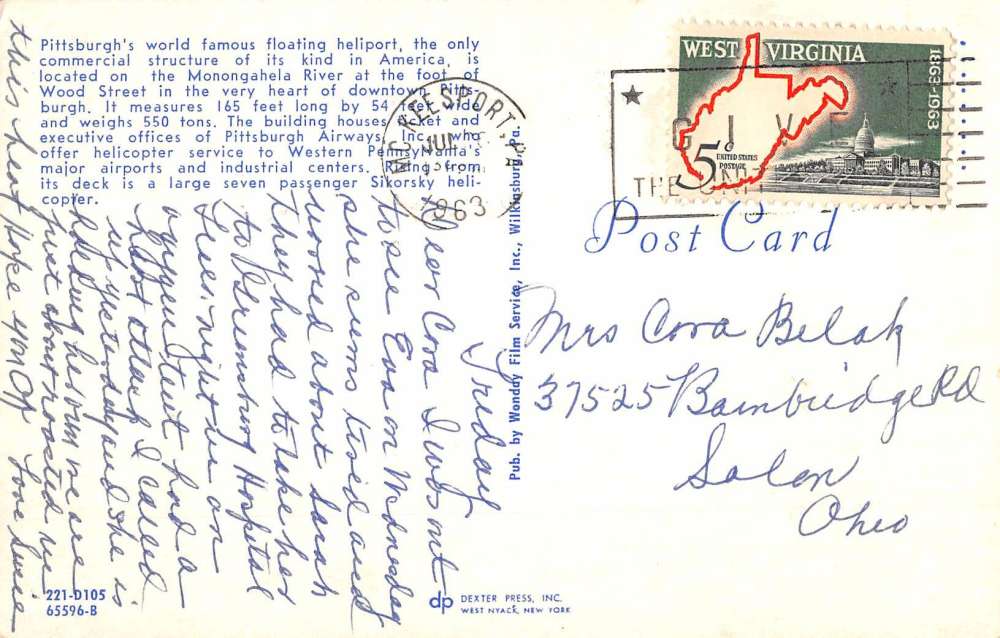 Pittsburgh's world famous floating heliport, the only
commercial structure of its kind in America, is
located on the Monongahela River at the foot of
Wood Street in the very heart of downtown Pitts-
burgh. It measures 165 feet long by 54 feet wide
and weighs 550 tons. The building houses ticket and
executive offices of Pittsburgh Airways, Inc., who
offer helicopter service to Western Pennsylvania's
major airports and industrial centers. Rising from
its deck is a large seven passenger Sikorsky heli-
copter.
McKEESPORT, PA
JUL
1963
WEST VIRGINIA
1863-1963
5¢
UNITED STATES
POSTAGE
GIVE
THE UNITED
Post Card
Mrs Cora Belak
37525 Bainbridge Rd
Solon
Ohio
Friday
Dear Cora I was out
to see Eva on Wednesday
she seems tired and
worried about Sarah
They had to take her
to Greensburg Hospital
Tues. night in an
oxygen tent had a
heart attack I called
up yesterday and she is
holding her own we are
just about roasted in
this heat Hope you
Love
Pub. by Wonday Film Service, Inc., Wilkinsburg, Pa.
221-D105
65596-B
dp DEXTER PRESS, INC.
WEST NYACK, NEW YORK